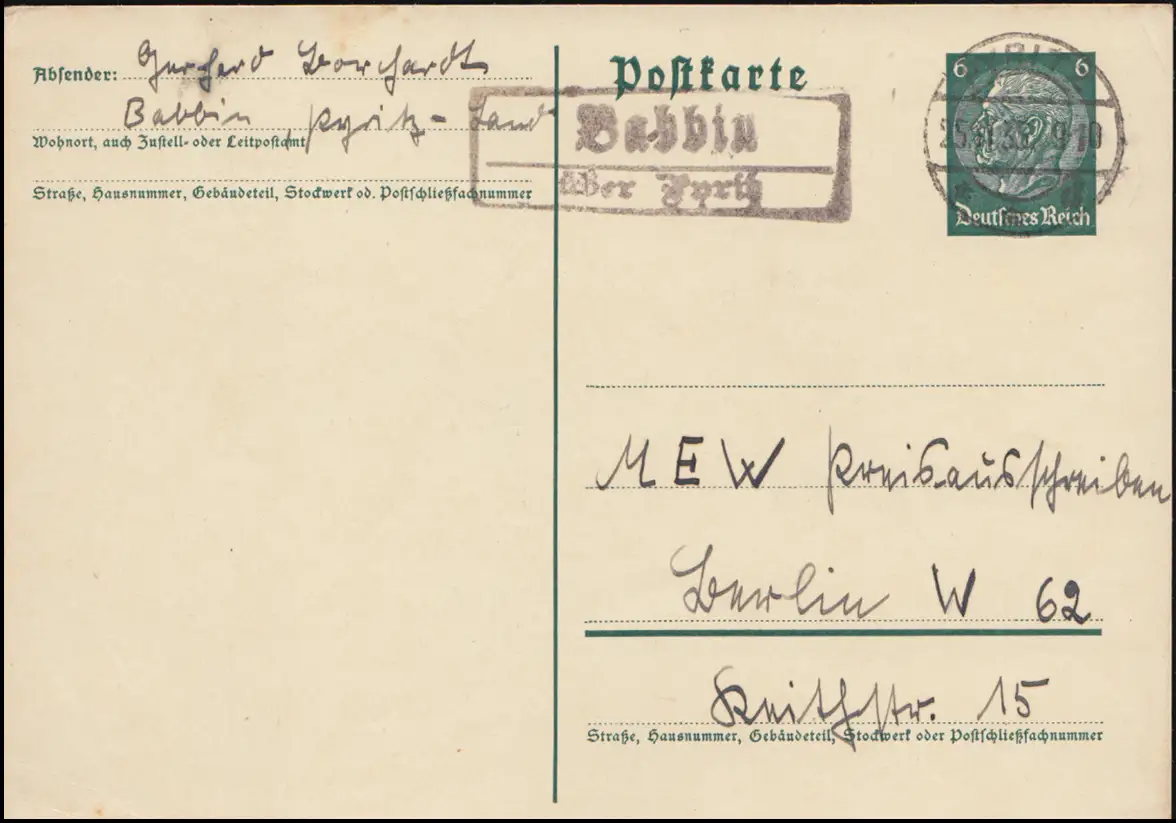 Absender: Gerhard Borchardt
Babbin Pyritz-Land
Wohnort, auch Zustell- oder Leitpostamt
Straße, Hausnummer, Gebäudeteil, Stockwerk od. Postschließfachnummer
Postkarte
Babbin
über Pyritz
6 6
9-10
Deutsches Reich
MEW Preisausschreiben
Berlin W 62
Keithstr. 15
Straße, Hausnummer, Gebäudeteil, Stockwerk oder Postschließfachnummer